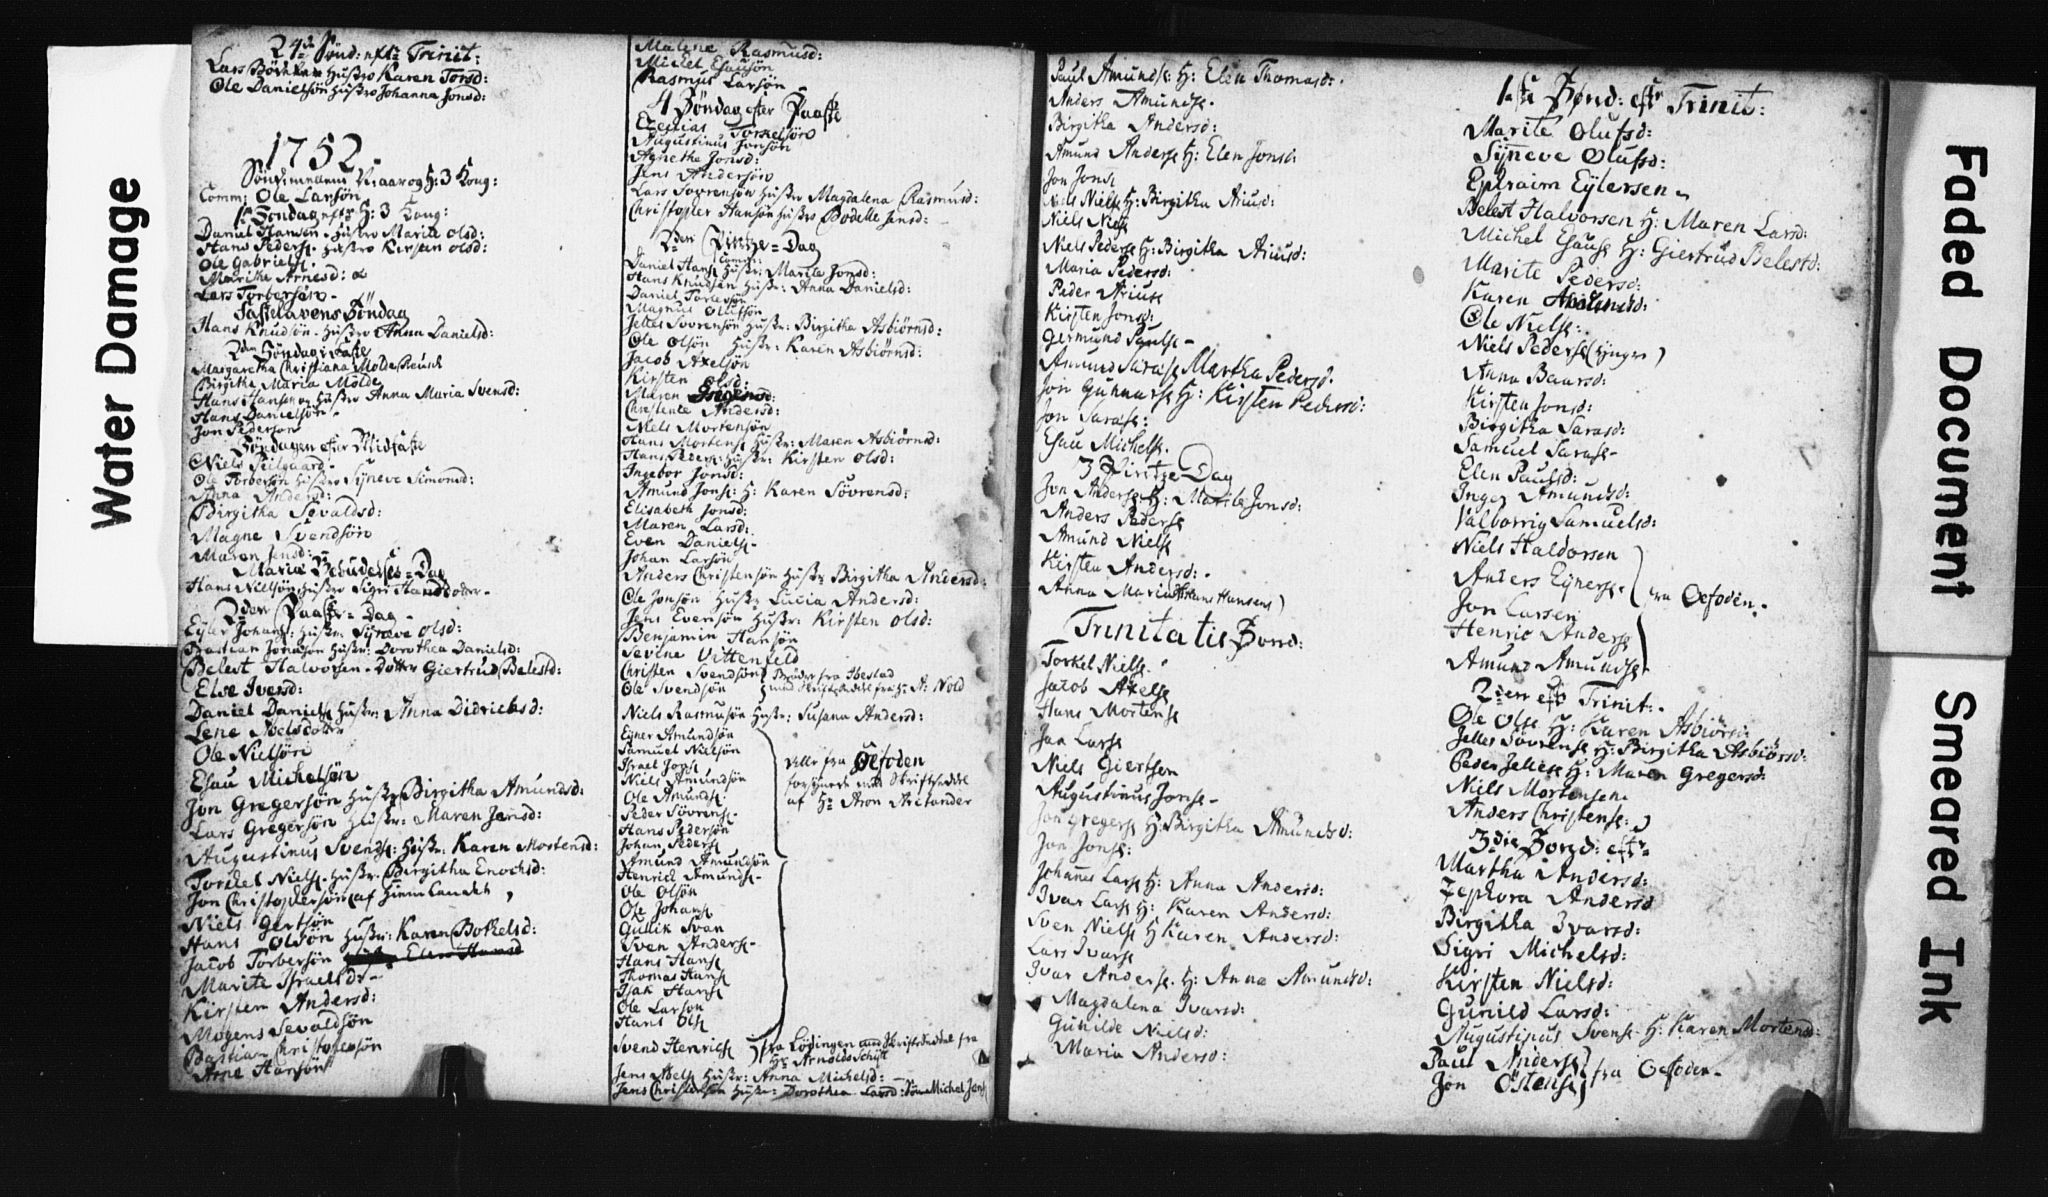 Water Damage
24de Sønd: eft: Trinit:
Lars Bødkker Hustro Karen Torsd:
Ole Danielsøn Hustro Johanna Jonsd:
1752
Sønd: mellem Nyaar og H: 3 Kong:
Comm: Ole Larsøn
1te Søndag eftr H: 3 Kong:
Daniel Hansen. Hustro Marite Olsd:
Hans Peders. Hustro Kirsten Olsd:
Ole Gabriels.
Marithe Arnesd:
Lars Torbersøn
Fastelavens Søndag
Hans Knudsøn. Hustro Anna Danielsd:
2den Søndag i Faste
Margaretha Christiana Molde
Birgitha Maria Molde
Hans Hansen Hustro Anna Maria Svensd:
Hans Danielsøn
Jon Pedersøn
Søndagen efter Midfaste
Niels Seilgaard
Ole Torbersøn Hustro Syneve Simonsd:
Anna Andersd:
Birgitha Sevaldsd:
Magne Svendsøn
Maren Jensd:
Mariæ Bebudelses-Dag
Hans Nielsøn Hustro Sigri Hansdotter
2den Paaske-Dag
Eyler Johans: Hustr: Syneve Olsd:
Bastian Jonasøn Hustr: Dorothea Danielsd:
Belest Halvorsen. Dotter Giertrud Belestd:
Else Iversd:
Daniel Daniels Hustr: Anna Didrichsd:
Lene Noelsdotter
Ole Nielsøn
Esau Michelsøn
Jon Gregersøn Hustr: Birgitha Amundsd:
Lars Gregersøn Hustr: Maren Jensd:
Augustinus Svends: Hustr: Karen Mortensd:
Torckel Niels. Hustr. Birgitha Enochsd:
Jon Christophersøn (af Hinn Landet)
Niels Gertsøn
Hans Olsøn Hustr: Karen Botkelsd:
Jacob Torbersøn
Marite Israelsd:
Kirsten Andersd:
Mogens Sevaldsøn
Bastian Christophersøn
Arne Hansøn
Malene Rasmusd:
Michel Esausøn
Rasmus Larsøn
4 Søndag efter Paaske
Ezechias Torkelsøn
Augustinus Jonsøn
Agnetha Jonsd:
Jens Andersøn
Lars Sovrensøn Hustr Magdalena Rasmusd:
Christopher Hansøn Hustr Bodelle Jensd:
2den Pintze-Dag
Comm:
Daniel Hans Hustr: Marite Jonsd:
Hans Knudsen Hustr: Anna Danielsd:
Daniel Torlessøn
Magnus Olufsøn
Jelles Sovrensøn Hustr: Birgitha Asbiørnsd:
Ole Olsøn Hustr: Karen Asbiørnsd:
Jacob Axelsøn
Kirsten Olsd:
Maren Gregersd:
Christente Andersd:
Niels Mortensøn
Hans Mortens Hustr: Maren Asbiørnsd:
Hans Peders: Hustr: Kirsten Olsd:
Ingebor Jonsd:
Amund Jons: H: Karen Sövrensd:
Elisabeth Jonsd:
Maren Larsd:
Even Daniels.
Johan Larsøn
Anders Christensøn Hustr Birgitha Andersd:
Ole Jonsøn Hustr Lucia Andersd:
Jens Evensøn Hustr: Kirsten Olsd:
Benjamin Hansøn
Sevine Vittenfeld
Christen Svendsøn Brøder fra Ibestad
Ole Svendsøn med Skriftseddel fra Hr: A: Nold
Niels Rasmusøn Hustr: Susana Andersd:
Eyner Amundsøn
Samuel Nielsøn
Israel Jons
Niels Amundsøn
Ole Amunds
Peder Sövrens.
Hans Pedersøn
Johan Peders
Amund Amundsøn
Henrich Amunds.
Ole Olsøn
Ole Johans
Gullik Svan
Sven Anders.
Hans Hans
Thomas Hans
Isak Hans
Ole Larson
Hans Ols
alle fra Oefoden
forsynede med Skriftseddel
af Hr Aron Arctander
Svend Henrichs fra Lödingen med Skriftseddel fra
Hr: Arnoldo Schytt
Jens Noels Hustr: Anna Michelsd:
Jens Christensøn Hustr: Dorothea Larsd: Søn Michel Jens
Paul Amunds: H: Elen Thomasd:
Anders Amunds.
Birgitha Andersd:
Amund Anders H: Elen Jonsd:
Jon Jons
Niels Niels H: Birgitha Ariusd:
Niels Niels
Niels Peders H: Birgitha Ariusd:
Maria Pedersd:
Peder Arius
Kirsten Jonsd:
Germund Pauls
Amund Saras Martha Pedersd:
Jon Gunnars H: Kirsten Pedersd:
Jon Saras:
Esau Michels.
3 Pintze Dag
Jon Anders H: Marite Jonsd:
Anders Peders
Amund Niels
Kirsten Andersd:
Anna Maria (Hans Hansens)
Trinitatis Sönd:
Torkel Niels.
Jacob Axels
Hans Mortens
Jan Lars
Niels Giertsen
Augustinus Jons
Jon Gregers H: Birgitha Amundsd:
Jon Jons:
Johannes Lars H: Anna Andersd:
Ivar Lars H: Karen Andersd:
Sven Niels H Karen Andersd:
Lars Ivars
Ivar Anders. H: Anna Amundsd:
Magdalena Ivarsd:
Gunilde Nielsd:
Maria Andersd:
1ste Sönd: eftr Trinit:
Marite Olufsd:
Syneve Olufsd:
Ephraim Eylersen
Belest Halvorsen H: Maren Larsd:
Michel Esaus H: Giertrud Belestd:
Marite Pedersd:
Karen
Ole Niels:
Niels Peders (Ynger)
Anna Baarsd:
Kirsten Jonsd:
Birgitha Sarasd:
Samuel Saras
Elen Paulsd:
Inger Amundsd:
Valborrig Samuelsd:
Niels Haldorsen
Anders Eyners. fra Oefoden.
Jon Larsen
Henric Anders
Amund Amunds
2den eftr Trinit:
Ole Ols H: Karen Asbiörsd:
Jelles Sövrens H: Birgitha Asbiörsd:
Peder Jelles H: Maren Gregersd:
Niels Mortensen
Anders Christens:
3die Sönd: eftr
Martha Andersd:
Zephora Andersd
Birgitha Ivarsd:
Sigri Michelsd:
Kirsten Nielsd:
Gunild Larsd:
Augustinus Svens H: Karen Mortensd:
Paul Anders fra Oefoden
Jon Östens
Faded Document
Smeared Ink